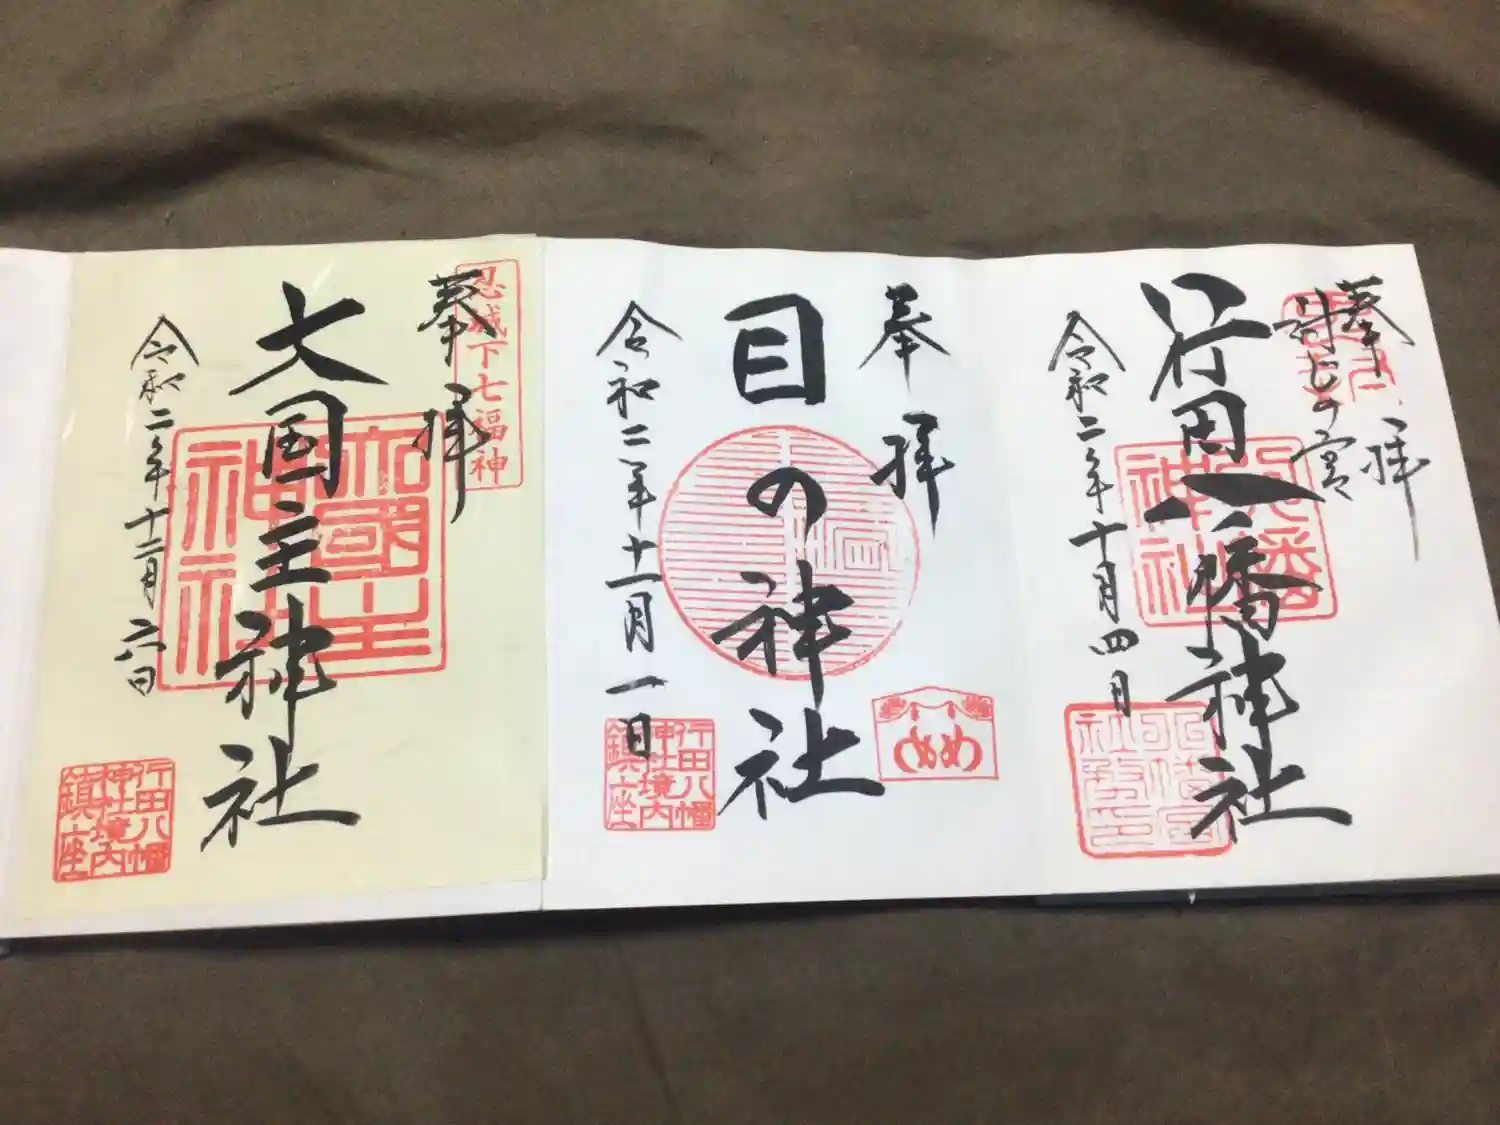 奉拝
封じの宮
行田八幡神社
令和二年十月四日
奉拝
目の神社
令和二年十一月一日
めめ
行田八幡
神社境内
鎮座
忍城下七福神
奉拝
大国主神社
大國主
神社
令和二年十二月六日
行田八幡
神社境内
鎮座